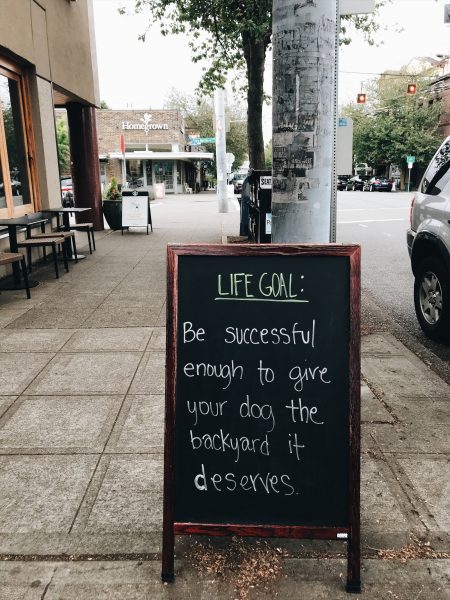 Homegrown
LIFE GOAL:
Be successful
enough to give
your dog the
backyard it
deserves.